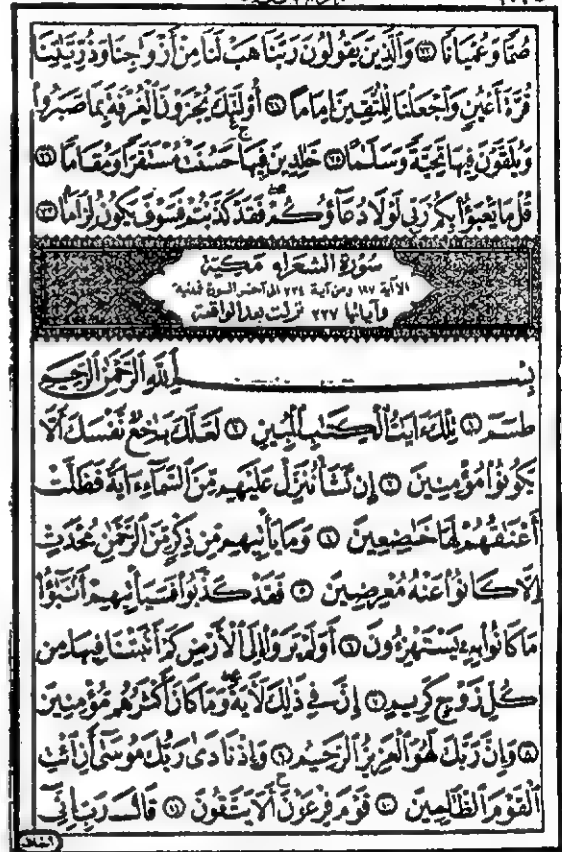 صُمًّا وَعُمْيَانًا ۝٧٣ وَالَّذِينَ يَقُولُونَ رَبَّنَا هَبْ لَنَا مِنْ أَزْوَاجِنَا وَذُرِّيَّاتِنَا
قُرَّةَ أَعْيُنٍ وَاجْعَلْنَا لِلْمُتَّقِينَ إِمَامًا ۝٧٤ أُوْلَٰئِكَ يُجْزَوْنَ الْغُرْفَةَ بِمَا صَبَرُوا
وَيُلَقَّوْنَ فِيهَا تَحِيَّةً وَسَلَامًا ۝٧٥ خَالِدِينَ فِيهَا حَسُنَتْ مُسْتَقَرًّا وَمُقَامًا ۝٧٦
قُلْ مَا يَعْبَؤُا بِكُمْ رَبِّي لَوْلَا دُعَآؤُكُمْ فَقَدْ كَذَّبْتُمْ فَسَوْفَ يَكُونُ لِزَامًا ۝٧٧
سورة الشعراء مكية
الآية ١٩٧ ومن آية ٢٢٤ الى آخر السورة فمدنية
وآياتها ٢٢٧ نزلت بعد الواقعة
بِسْمِ اللَّهِ الرَّحْمَٰنِ الرَّحِيمِ
طسٓمٓ ۝١ تِلْكَ ءَايَاتُ الْكِتَابِ الْمُبِينِ ۝٢ لَعَلَّكَ بَاخِعٌ نَّفْسَكَ أَلَّا
يَكُونُوا مُؤْمِنِينَ ۝٣ إِن نَّشَأْ نُنَزِّلْ عَلَيْهِم مِّنَ السَّمَآءِ ءَايَةً فَظَلَّتْ
أَعْنَاقُهُمْ لَهَا خَاضِعِينَ ۝٤ وَمَا يَأْتِيهِم مِّن ذِكْرٍ مِّنَ الرَّحْمَٰنِ مُحْدَثٍ
إِلَّا كَانُوا عَنْهُ مُعْرِضِينَ ۝٥ فَقَدْ كَذَّبُوا فَسَيَأْتِيهِمْ أَنبَٰٓؤُا
مَا كَانُوا بِهِۦ يَسْتَهْزِءُونَ ۝٦ أَوَلَمْ يَرَوْا إِلَى الْأَرْضِ كَمْ أَنبَتْنَا فِيهَا مِن
كُلِّ زَوْجٍ كَرِيمٍ ۝٧ إِنَّ فِي ذَٰلِكَ لَآيَةً وَمَا كَانَ أَكْثَرُهُم مُّؤْمِنِينَ
۝٨ وَإِنَّ رَبَّكَ لَهُوَ الْعَزِيزُ الرَّحِيمُ ۝٩ وَإِذْ نَادَىٰ رَبُّكَ مُوسَىٰٓ أَنِ ائْتِ
الْقَوْمَ الظَّالِمِينَ ۝١٠ قَوْمَ فِرْعَوْنَ أَلَا يَتَّقُونَ ۝١١ قَالَ رَبِّ إِنِّيٓ
أخاف